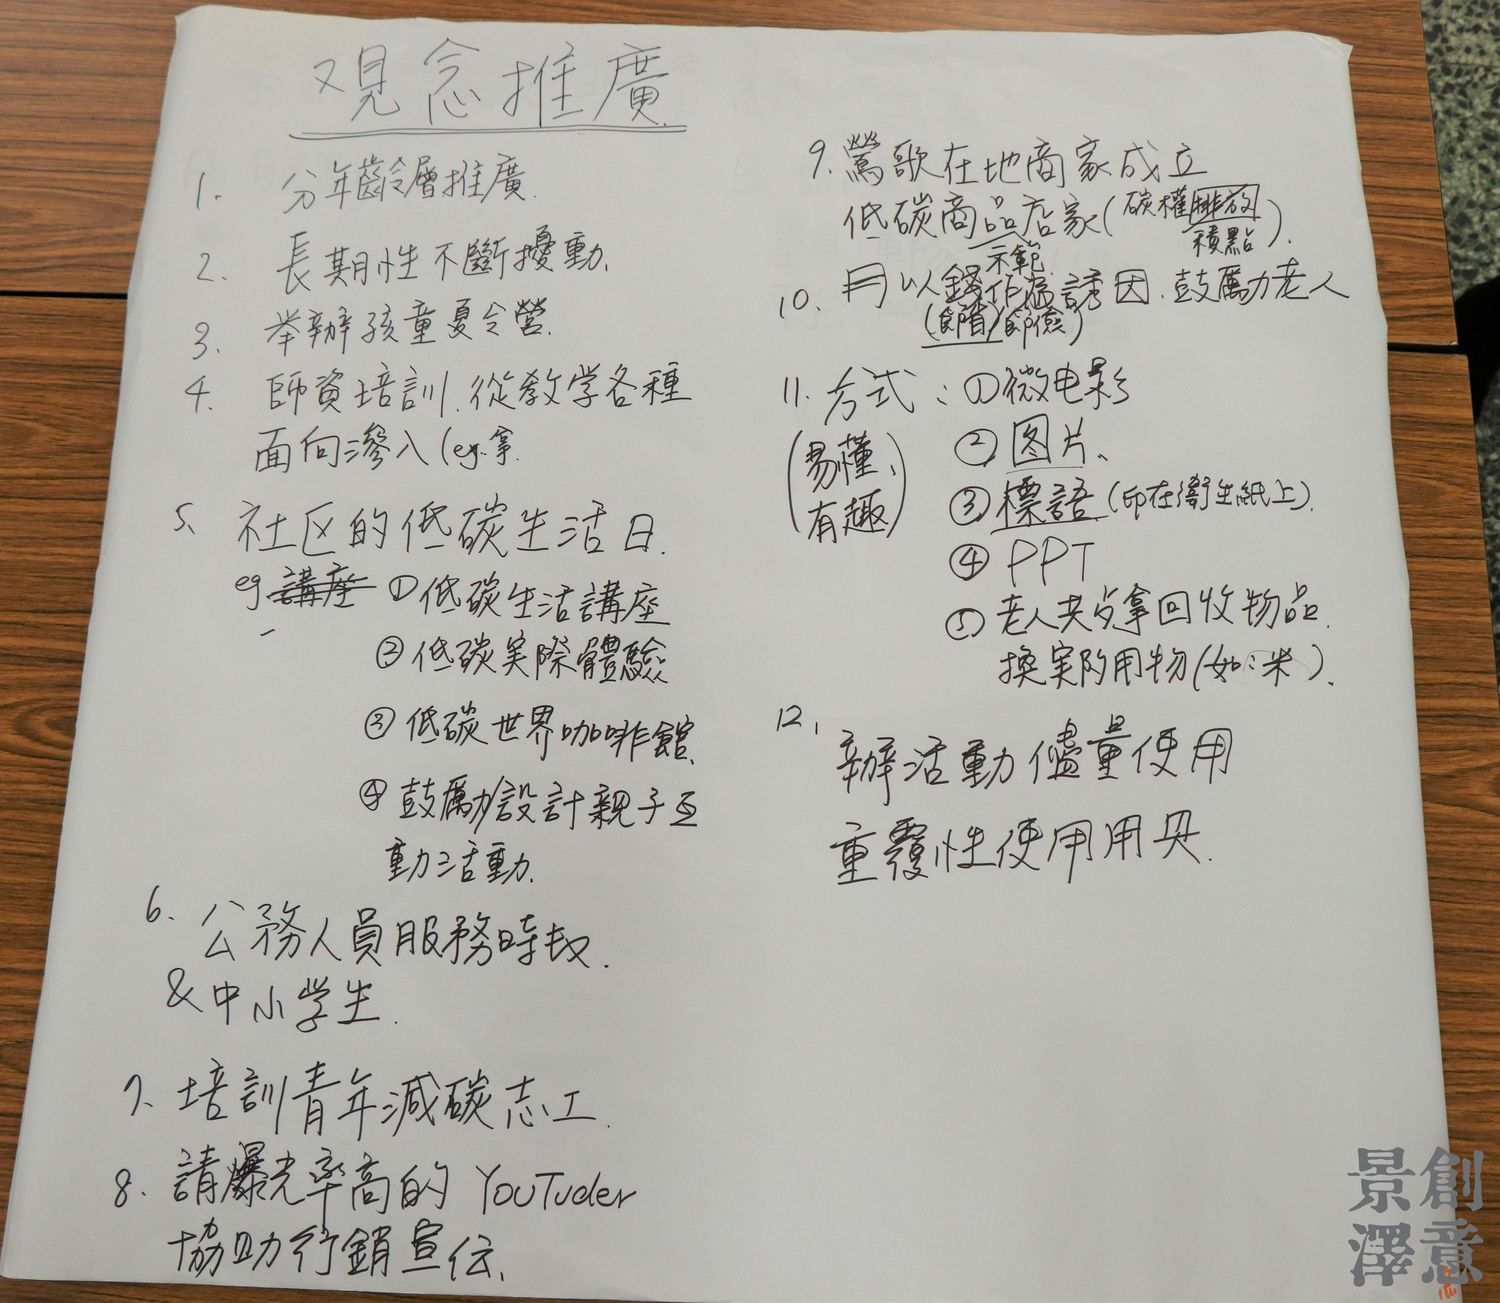 观念推廣
1. 分年齡層推廣.
2. 長期性不斷擾動.
3. 举辦孩童夏令營.
4. 師資培訓.從教学各種
面向滲入(eg.拿.
5、社区的低碳生活日.
eg 講座 ①低碳生活講座
②低碳実際體驗
③低碳世界咖啡館.
④鼓勵/設計親子互
動活動.
6、公務人員服務時数.
&中小学生.
7、培訓青年減碳志工.
8. 請爆光率高的YouTuder
協助行銷宣伝、
9. 鶯歌在地商家成立
低碳商品店家(碳權排放
積點).
示範
10. 用以錢作為誘因.鼓勵老人
(節省/節儉)
11. 方式:①微电影
(易懂、
有趣)
②图片、
③標語(印在衛生紙上).
④PPT
⑤老人夹步拿回收物品.
換実際用物(如:米).
12、
辦活動儘量使用
重覆性使用用具.
景創
澤意